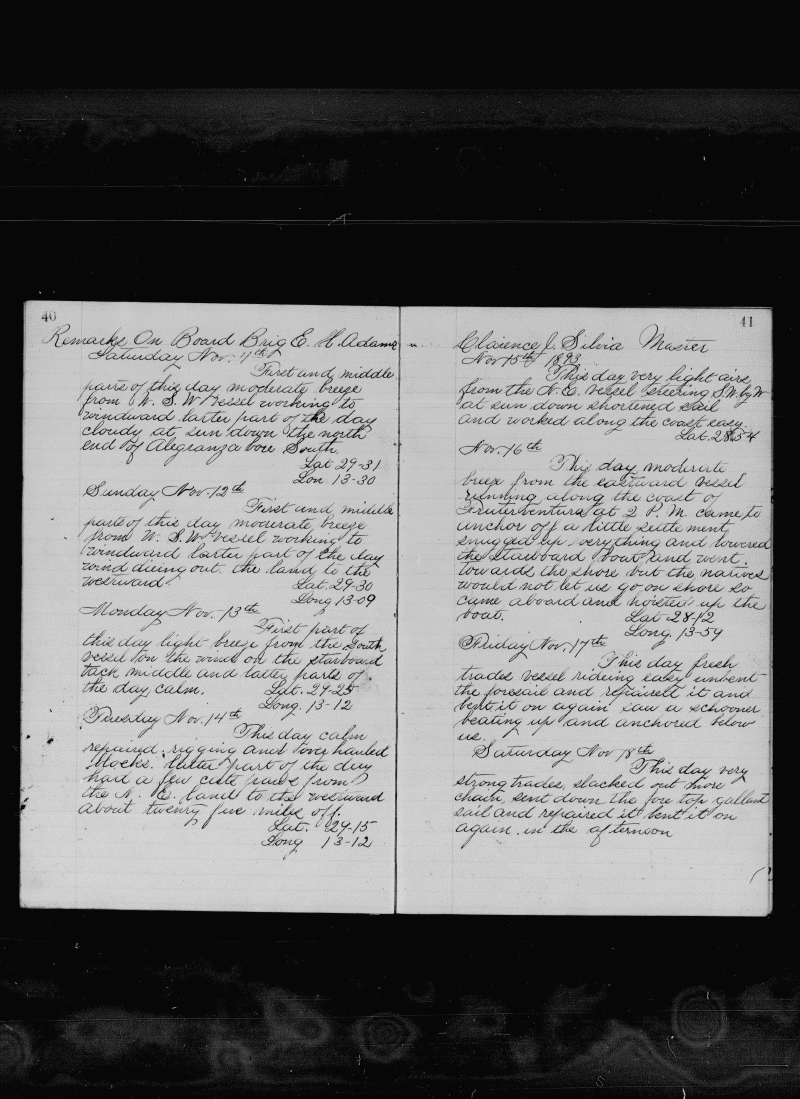 40
Remarks On Board Brig E. H. Adams
Saturday Nov. 11th
First and middle
parts of this day moderate breeze
from W. S. W vessel working to
windward latter part of the day
cloudy at sun down the north
end of Alegranza bore South.
Lat 29-31
Lon. 13-30
Sunday Nov. 12th
First and middle
parts of this day moderate breeze
from W. S. W vessel working to
windward latter part of the day
wind dieing out. the land to the
westward.
Lat. 29-30
Long 13-09
Monday Nov. 13th
First part of
this day light breeze from the South
vessel on the wind on the starboard
tack middle and latter parts of
the day calm.
Lat. 29-25
Long. 13-12
Tuesday Nov. 14th
This day calm
repaired rigging and over hauled
blocks. latter part of the day
had a few cats paws from
the N. E. land to the westward
about twenty five miles off.
Lat. 29-15
Long 13-12
41
Clarence J. Silvia Master
Nov 15th 1893
This day very light airs
from the N. E. vessel steering S.W. by W
at sun down shortened sail
and worked along the coast easy.
Lat. 28-54
Nov. 16th
This day moderate
breeze from the eastward vessel
running along the coast of
Fruterventura at 2 P. M. came to
anchor off a little settlement,
snugged up everything and lowered
the starboard boat and went
towards the shore but the natives
would not let us go on shore so
came aboard and hoisted up the
boat.
Lat 28-12
Long. 13-59
Friday Nov. 17th
This day fresh
trades vessel rideing easy unbent
the foresail and repaired it and
bent it on again saw a schooner
beating up and anchored below
us.
Saturday Nov 18th
This day very
strong trades, slacked out more
chain, sent down the fore top gallant
sail and repaired it bent it on
again in the afternoon